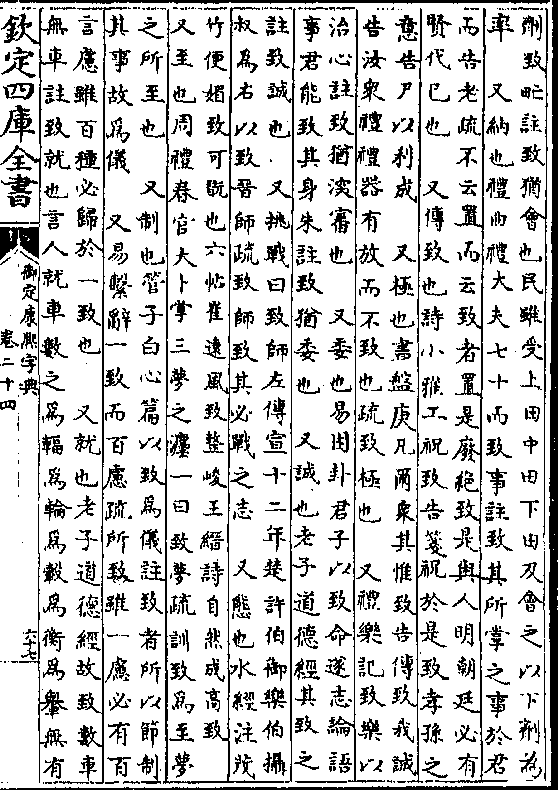 劑致甿註致猶會也民雖受上田中田下田及會之以下劑為
率　又納也禮曲禮大夫七十而致事註致其所掌之事於君
而告老疏不云置而云致者置是廢絶致是與人明朝廷必有
賢代已也　又傳致也詩小雅工祝致告箋祝於是致孝孫之
意告尸以利成　又極也書盤庚凡爾衆其惟致告傳致我誠
告汝衆禮禮器有放而不致也疏致極也　又禮樂記致樂以
治心註致猶深審也　又委也易困卦君子以致命遂志論語
事君能致其身朱註致猶委也　又誠也老子道德經其致之
註致誠也　又挑戰曰致師左傳宣十二年楚許伯御樂伯攝
叔為右以致晉師疏致師致其必戰之志　又態也水經注茂
竹便娟致可翫也六帖崔遠風致整峻王縉詩自然成高致
又至也周禮春官大卜掌三夢之灋一曰致夢疏訓致為至夢
之所至也　又制也管子白心篇以致為儀註致者所以節制
其事故為儀　又易繫辭一致而百慮疏所致雖一慮必有百
言慮雖百種必歸於一致也　又就也老子道德經故致數車
無車註致就也言人就車數之為輻為輪為轂為衡為轝無有
欽定四庫全書
御定康熙字典
卷二十四
六十七